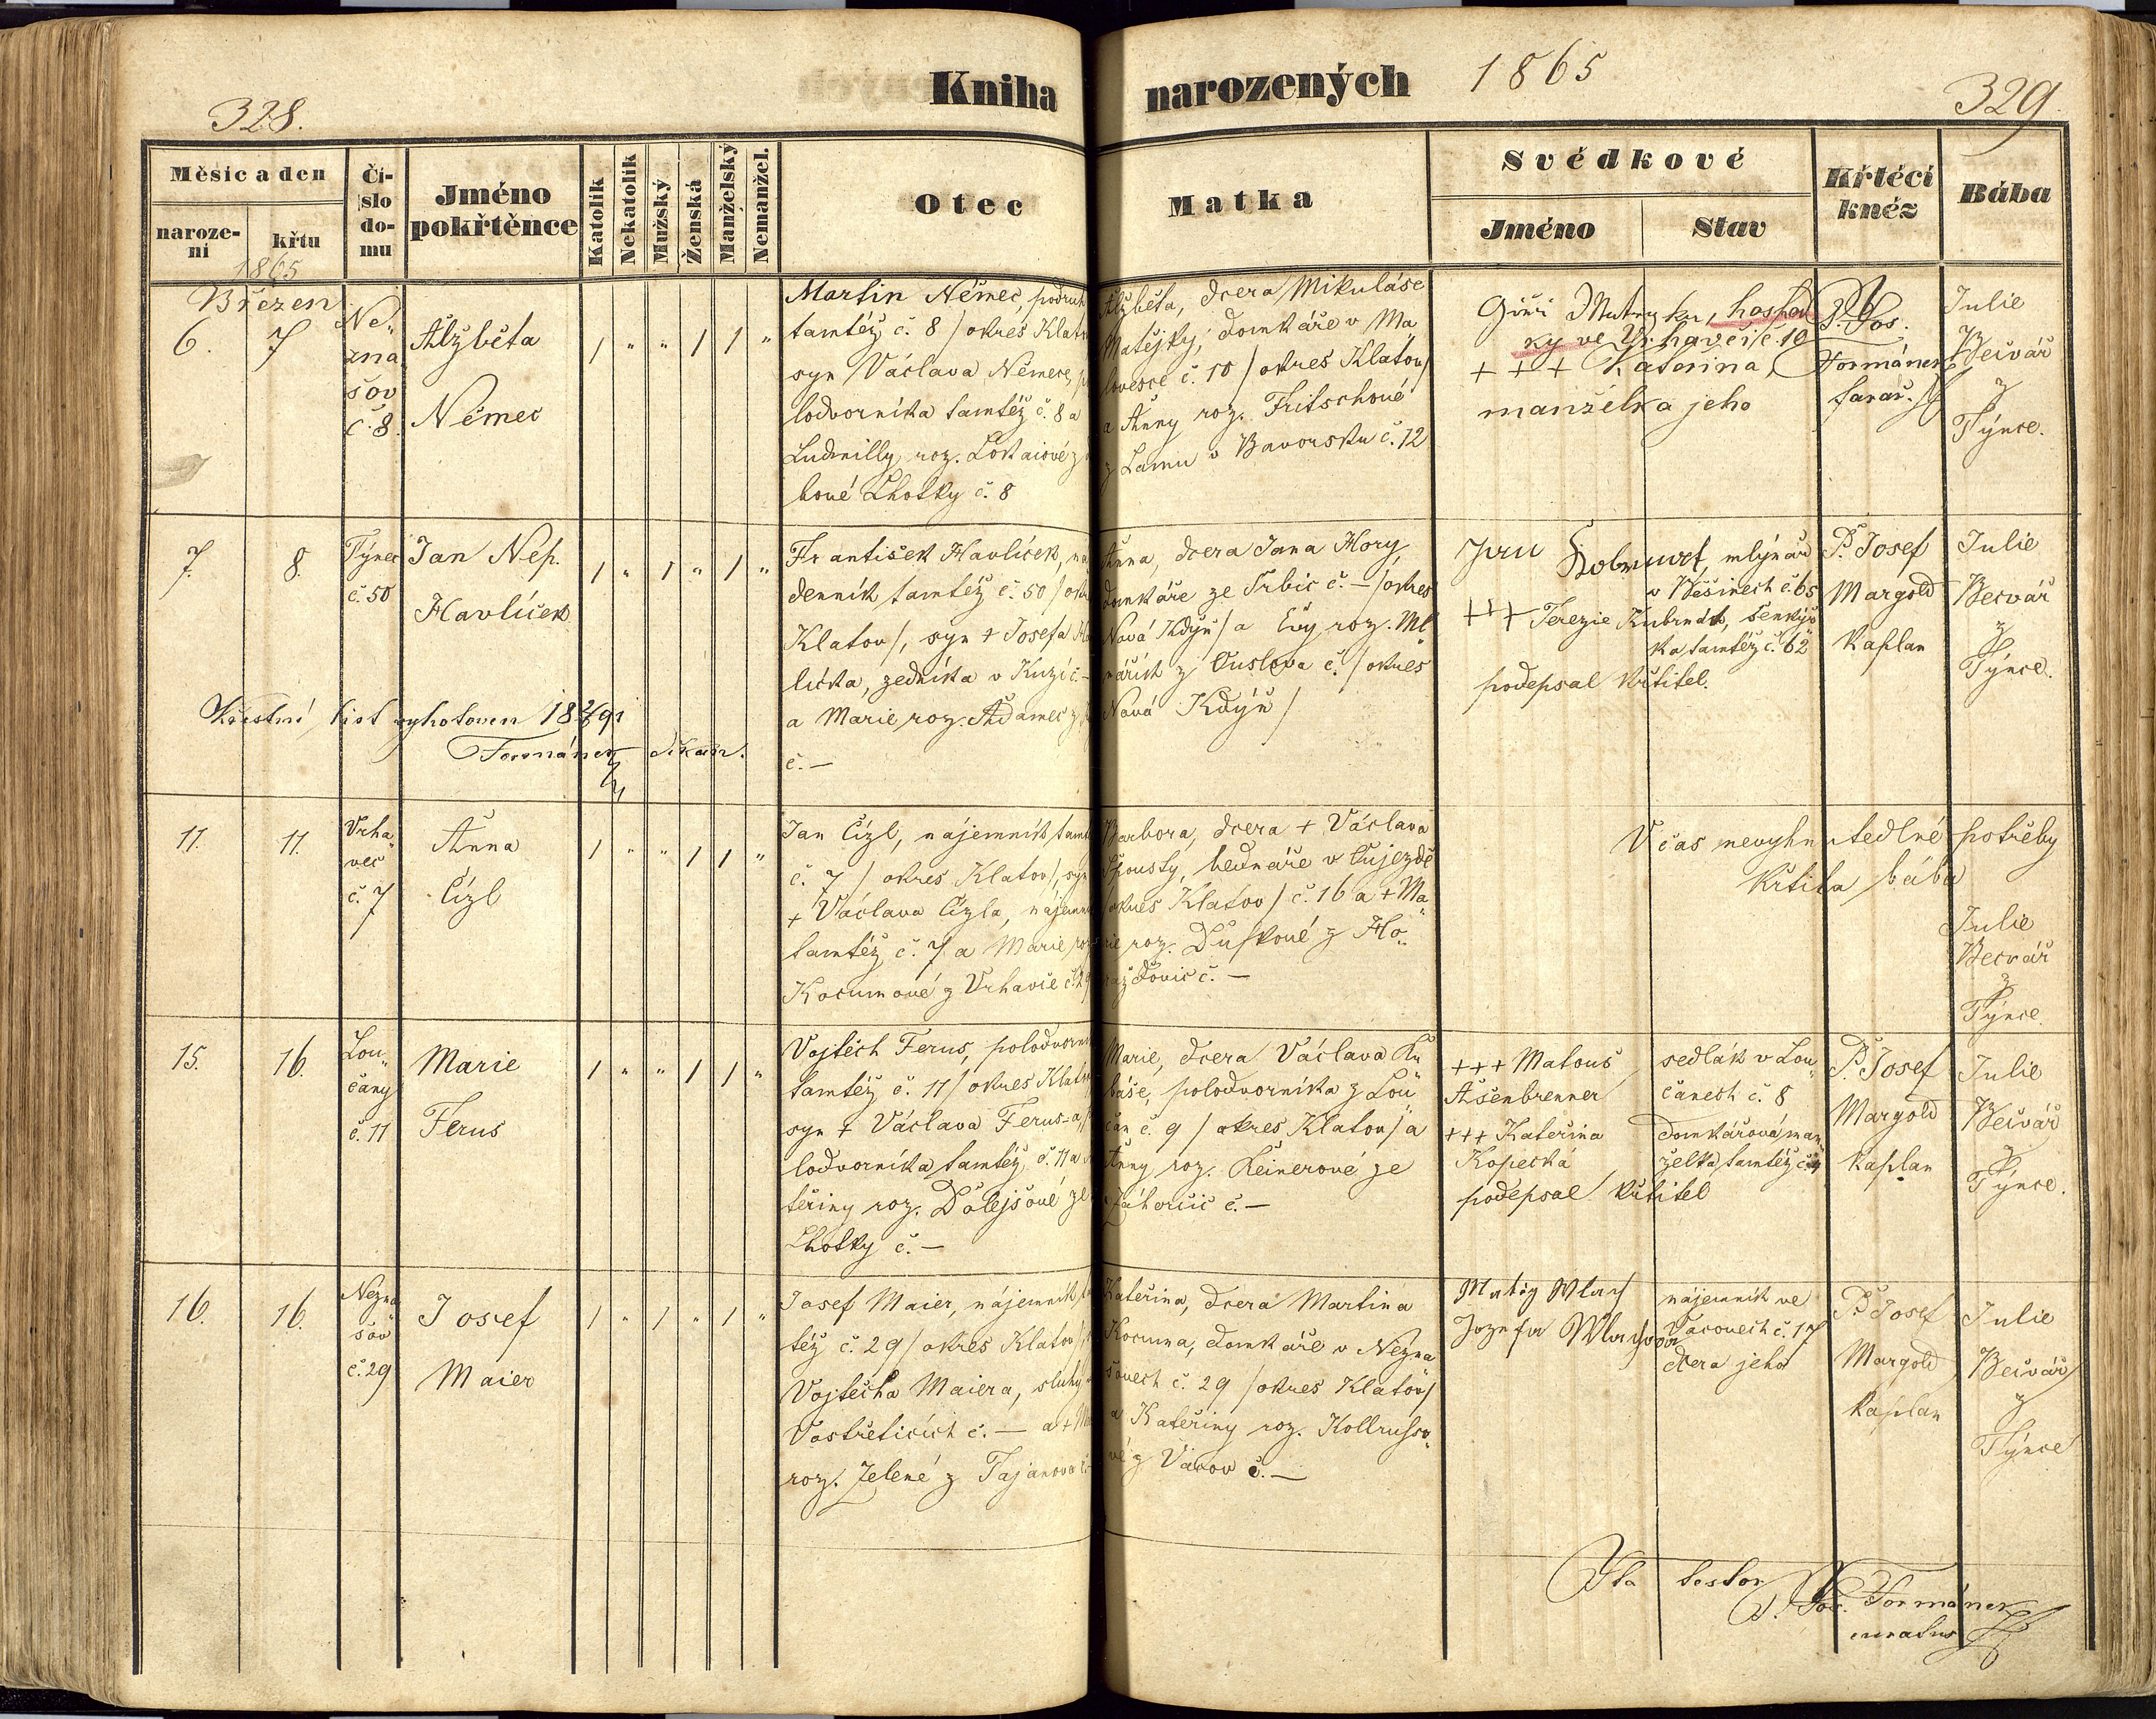 328.
Kniha
narozených
1865
329.
Měsíc a den
naroze-
ní
křtu
1865
Čí-
slo
do-
mu
Jméno
pokřtěnce
Katolík
Nekatolík
Mužský
Ženská
Manželský
Nemanžel.
Otec
Matka
Svědkové
Jméno
Stav
Křtěcí
kněz
Bába
Březen
6.
7
Ne„
zna
šov
č. 8.
Alžběta
Němec
1 „ „ 1 1 „
Martin Němec, podruh
tamtéž č. 8 / okres Klatov
syn Václava Němece,
lodvorníka tamtéž č. 8 a
Ludmilly roz. Lokaiové z
bové Lhotky č. 8
Alžběta, dcera Mikuláše
Matějky, domkáře v Ma
lovesce č. 10 / okres Klatov/
a Anny roz. Fritschové
z Lamu v Bavorsku č. 12
hospod
ky ve Vrhavči č. 10
+ + + Kateřina,
manželka jeho
P. Jos.
Formánek
farář.
Julie
Bečvář
z
Týnce.
7.
8.
Týnec
č. 50
Jan Nep.
Havlíček
1 „ 1 „ 1 „
František Havlíček, ná
denník tamtéž č. 50 / okr
Klatov/, syn + Josefa Ha
líčka, zedníka v
a Marie roz. Adamec z
č. —
Anna, dcera Jana Hory,
domkáře ze Srbic č. — /okres
Nová Kdýň/ a Evy roz. Ml
nářích z Ouslova č. / okres
Nová Kdýň /
Jan mlynář
v Běšinech č. 65
+++ Terezie šenkýř
ka tamtéž č. 62
podepsal křtitel.
P. Josef
Margold
kaplan
Julie
Bečvář
z
Týnce.
Křestní list vyhotoven
Formánek děkan.
11.
11.
Vrha„
več
č. 7
Anna
Čízl
1 „ „ 1 1 „
Jan Čízl, nájemník tamt
č. 7 / okres Klatov/, syn
+ Václava Čízla, nájemn
tamtéž č. 7 a Marie roz
Kocumové z Vrhavče č. 29
Barbora, dcera + Václava
Spousty, bednáře v Oujezdě
/okres Klatov / č. 16 a + Ma„
rie roz. Duškové z Ho„
raždovic č. —
V čas nevyhnutedlné potřeby
křtila bába
Julie
Bečvář
z
Týnce
15.
16.
Lou„
čany
č. 11
Marie
Ferus
1 „ „ 1 1 „
Vojtěch Ferus, polodvorn
tamtéž č. 11 / okres Klatov
syn + Václava Ferus-a,
lodvorníka tamtéž č. 11 a
teřiny roz. Dolejšové ze
Lhotky č. —
Marie, dcera Václava Ku
báše, polodvorníka z Lou
čan č. 9 / okres Klatov/ a
Anny roz. Leinerové ze
Záhorčic č. —
+++ Matouš
Ašenbrenner
+++ Kateřina
Kopecká
podepsal křtitel
sedlák v Lou„
čanech č. 8
domkářová man
želka tamtéž č. 4
P. Josef
Margold
kaplan
Julie
Bečvář
z
Týnce.
16.
16.
Nezna
šov
č. 29
Josef
Maier
1 „ 1 „ 1 „
Josef Maier, nájemník ta
též č. 29 / okres Klatov/
Vojtěcha Maiera, sluhy
Vostřeticích č. — a +
roz. Jelené z Tajanova č.
Kateřina, dcera Martina
Kocuma, domkáře v Nezna
šovech č. 29 /okres Klatov/
a Kateřiny roz. Kollrusso„
vé z Vacov č. —
Matěj Wlach
Jozefa
nájemník ve
Vacovech č. 17
dcera jeho
P. Josef
Margold
kaplan
Julie
Bečvář
z
Týnce
Ita testor
P. Jos. Formánek
curatus